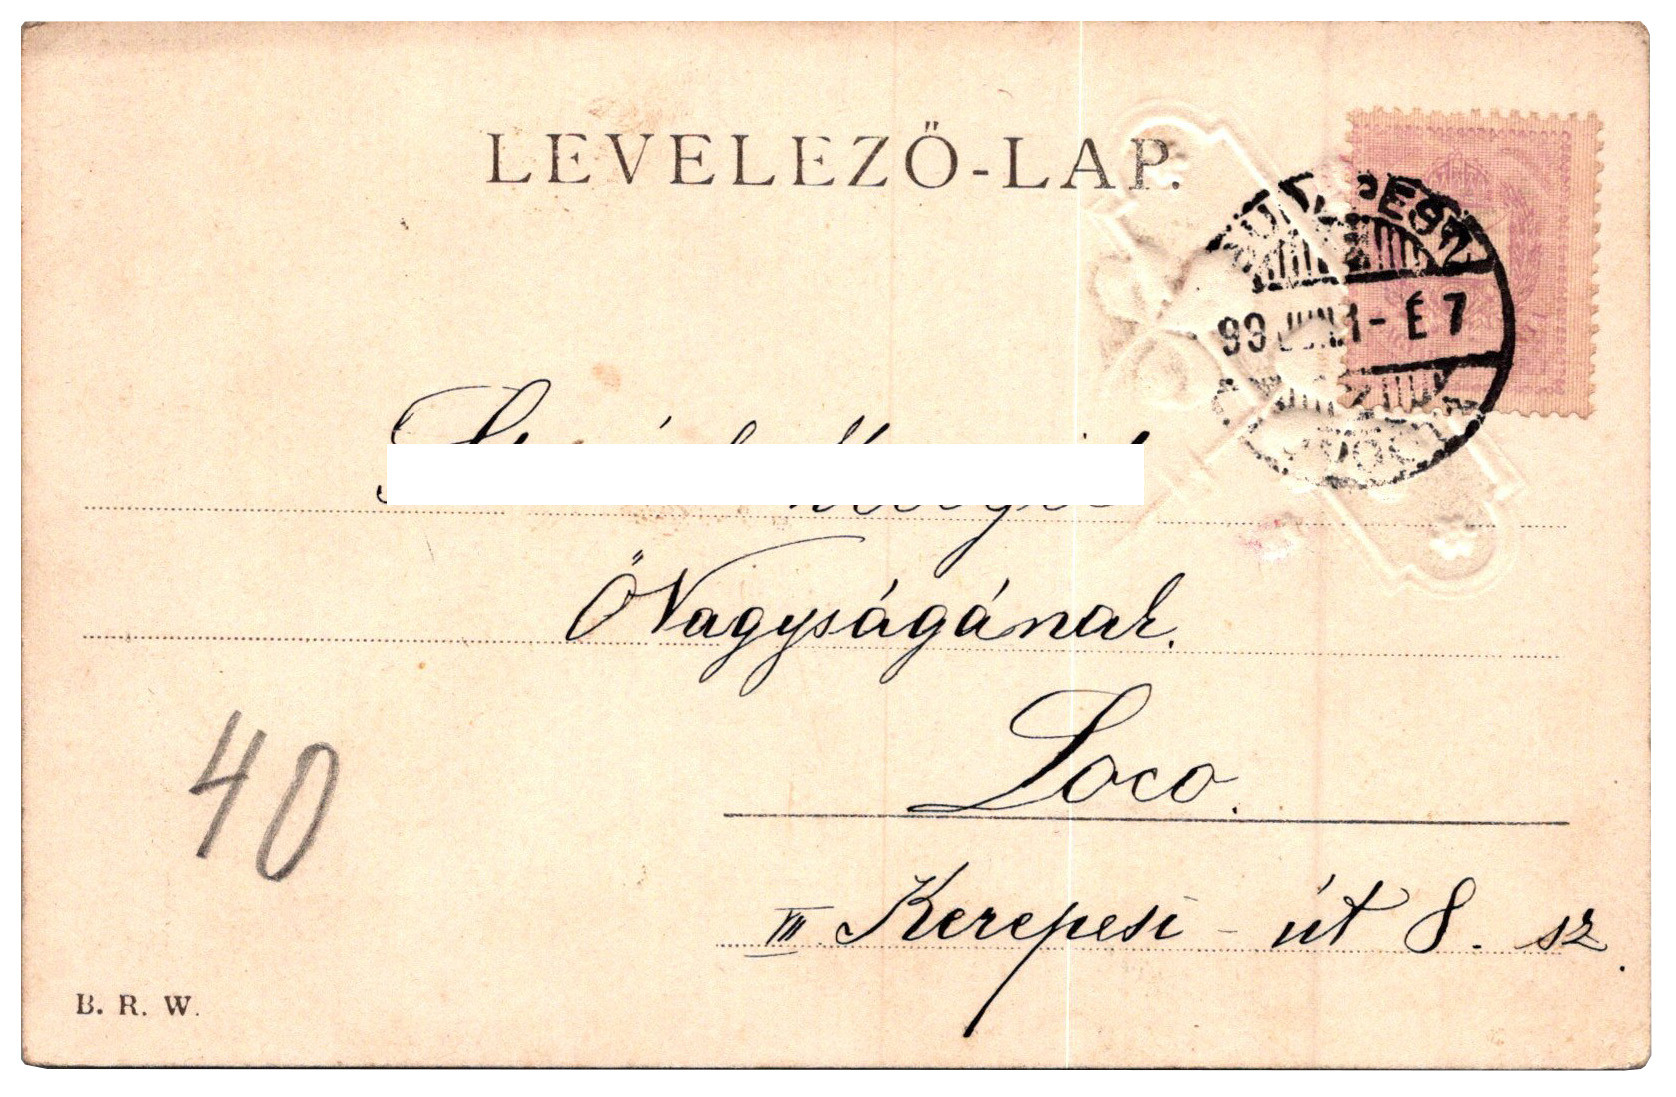 LEVELEZŐ-LAP.
BUDAPEST
99 JUN.1-É7
Ő Nagyságának.
Loco.
VII Kerepesi-út 8. sz.
40
B. R. W.